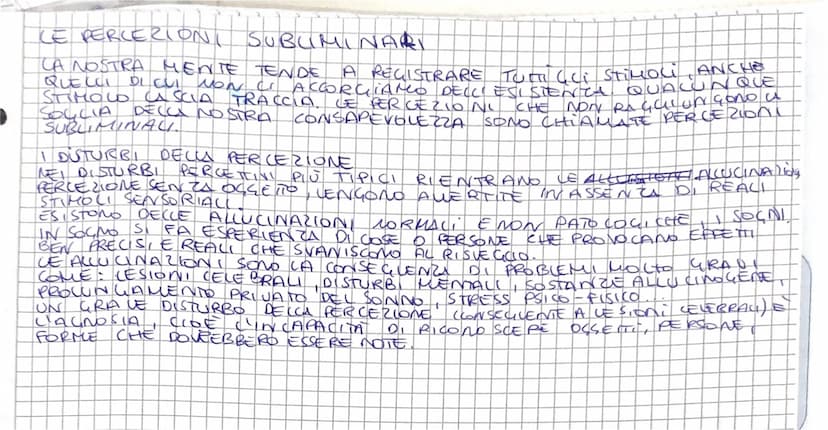 LE PERCEZIONI SUBLIMINARI
LA NOSTRA MENTE TENDE A REGISTRARE TUTTI GLI STIMOLI, ANCHE
QUELLI DI CUI NON CI ACCORGIAMO DELL'ESISTENZA. QUALUNQUE
STIMOLO LASCIA TRACCIA. LE PERCEZIONI CHE NON RAGGIUNGONO LA
SOGLIA DELLA NOSTRA CONSAPEVOLEZZA SONO CHIAMATE PERCEZIONI
SUBLIMINALI.
I DISTURBI DELLA PERCEZIONE
NEI DISTURBI PERCETTIVI PIÙ TIPICI RIENTRANO LE ALLUCINAZIONI,
PERCEZIONE SENZA OGGETTO, VENGONO AVVERTITE IN ASSENZA DI REALI
STIMOLI SENSORIALI.
ESISTONO DELLE ALLUCINAZIONI NORMALI E NON PATOLOGICHE, I SOGNI.
IN SOGNO SI FA ESPERIENZA DI COSE O PERSONE CHE PROVOCANO EFFETTI
BEN PRECISI E REALI CHE SVANISCONO AL RISVEGLIO.
LE ALLUCINAZIONI SONO LA CONSEGUENZA DI PROBLEMI MOLTO GRAVI
COME: LESIONI CELEBRALI, DISTURBI MENTALI, SOSTANZE ALLUCINOGENE,
PROLUNGAMENTO PRIVATO DEL SONNO, STRESS PSICO-FISICO...
UN GRAVE DISTURBO DELLA PERCEZIONE (CONSEGUENTE A LESIONI CELEBRALI) È
L'AGNOSIA, CIOÈ L'INCAPACITÀ DI RICONOSCERE OGGETTI, PERSONE,
FORME CHE DOVREBBERO ESSERE NOTE.